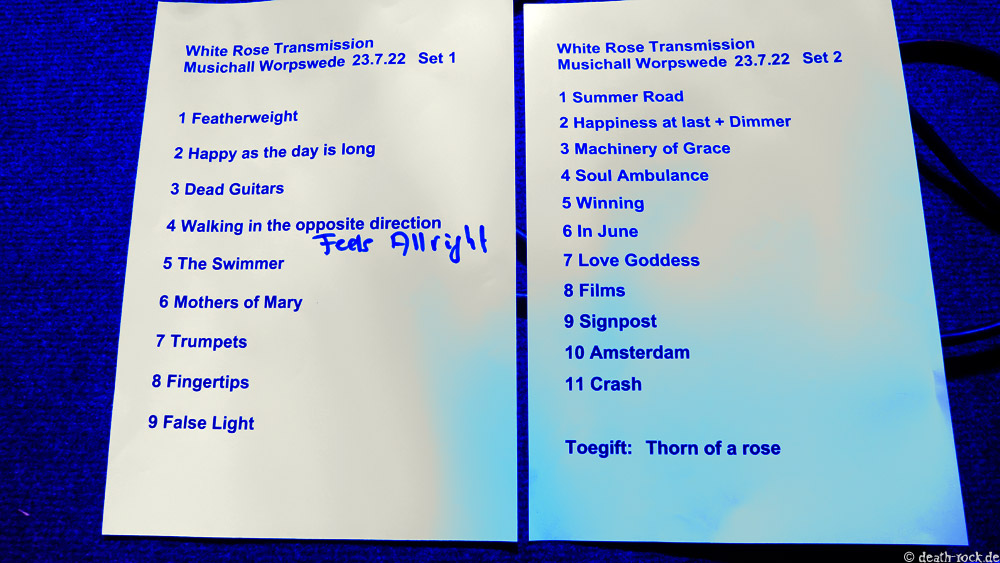 White Rose Transmission
Musichall Worpswede 23.7.22 Set 1
1 Featherweight
2 Happy as the day is long
3 Dead Guitars
4 Walking in the opposite direction
Feels Allright
5 The Swimmer
6 Mothers of Mary
7 Trumpets
8 Fingertips
9 False Light
White Rose Transmission
Musichall Worpswede 23.7.22 Set 2
1 Summer Road
2 Happiness at last + Dimmer
3 Machinery of Grace
4 Soul Ambulance
5 Winning
6 In June
7 Love Goddess
8 Films
9 Signpost
10 Amsterdam
11 Crash
Toegift: Thorn of a rose
© death-rock.de